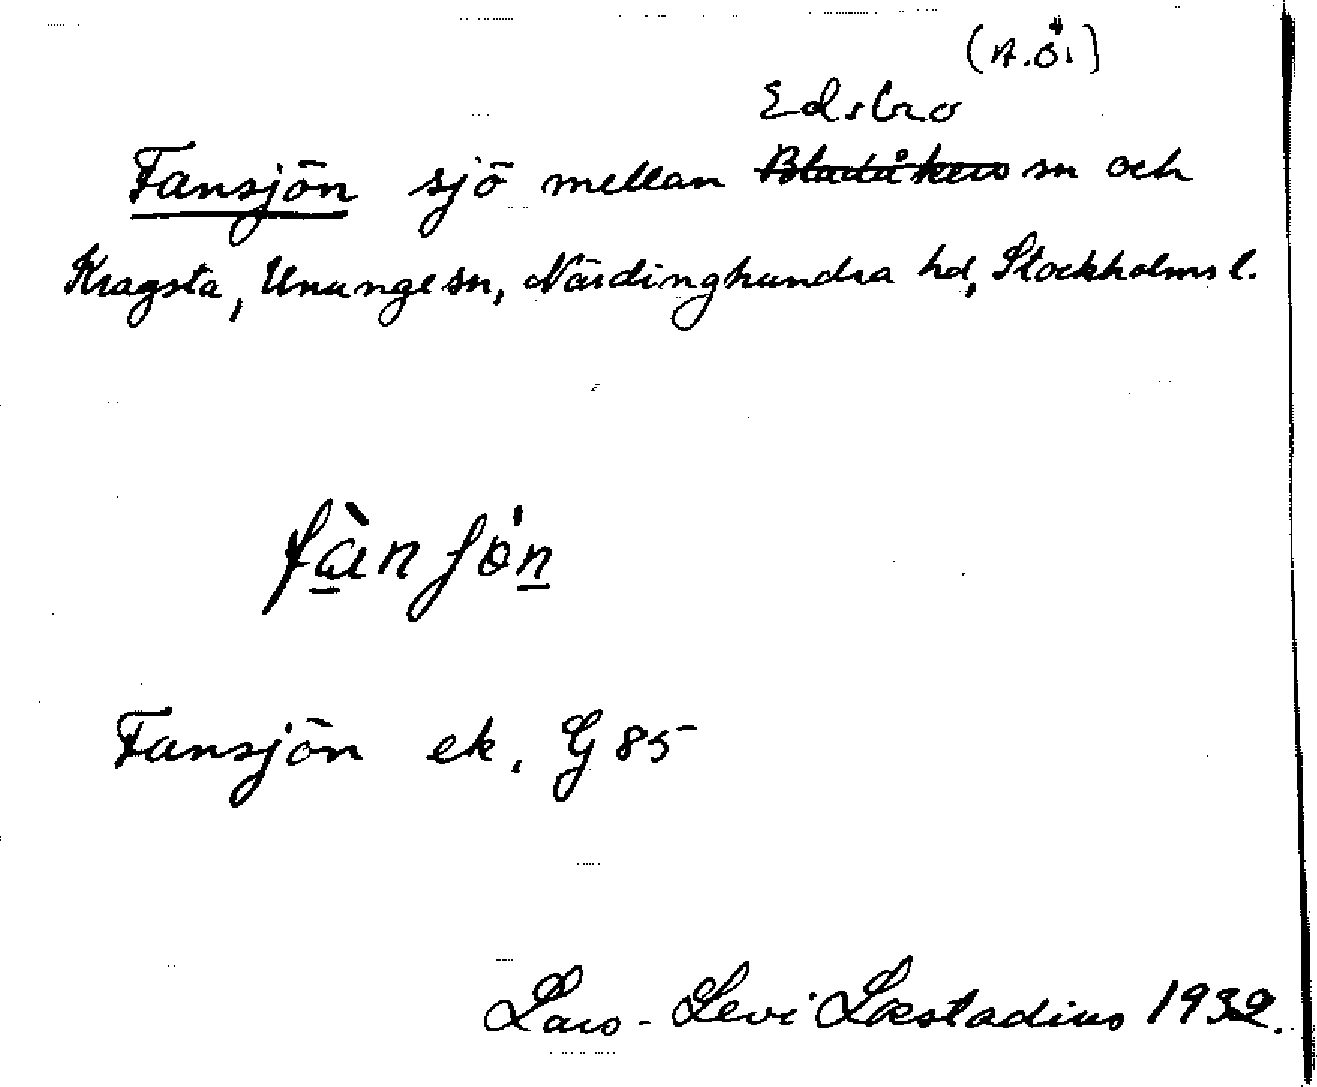 (N.Ö.)
Edsbro
Fansjön sjö mellan Bladåkers sn och
Kragsta, Ununge sn, Närdinghundra hd, Stockholms l.
fànsjön
Fansjön ek. G 85
Lars-Levi Læstadius 1932.